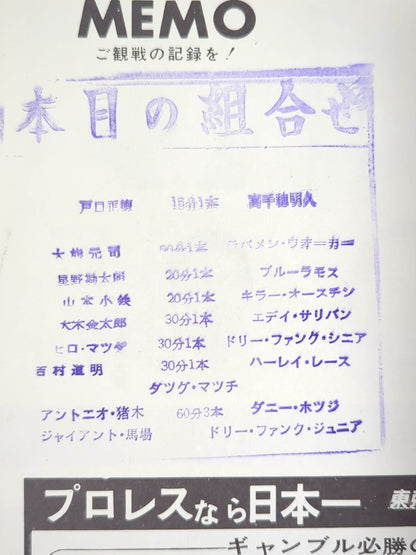 MEMO
ご観戦の記録を!
本日の組合せ
戸口正徳 15分1本 高千穂明久
大熊元司 20分1本 ウォーカー
星野勘太郎 20分1本 ブルーラモス
山本小鉄 20分1本 キラー・オースチン
大木金太郎 30分1本 エデイ・サリバン
ヒロ・マツダ 30分1本 ドリー・ファンク・シニア
吉村道明 30分1本 ハーレイ・レース
タッグ・マッチ
アントニオ・猪木 60分3本 ダニー・ホッジ
ジャイアント・馬場 ドリー・ファンク・ジュニア
プロレスなら日本一
ギャンブル必勝